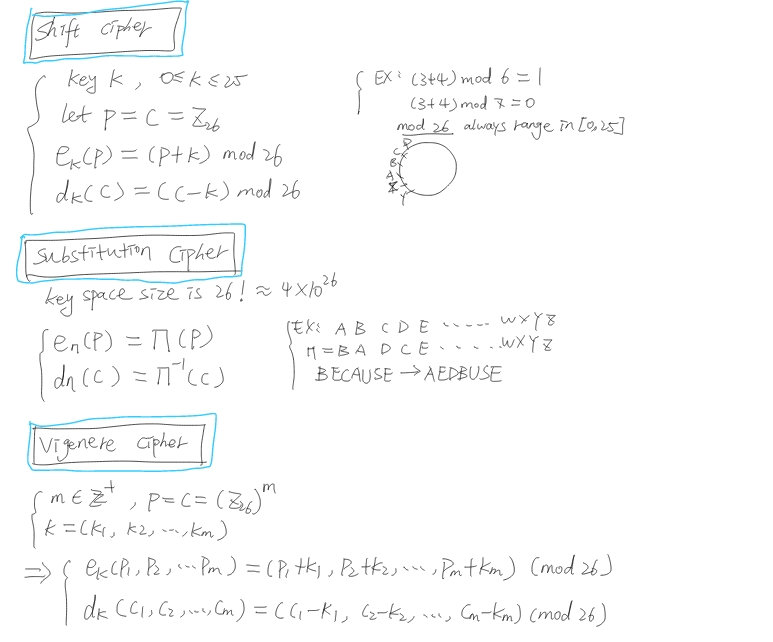 Shift Cipher
key k , 0≤k≤25
let P = C = Z₂₆
eₖ(P) = (P+k) mod 26
dₖ(C) = (C-k) mod 26
EX: (3+4) mod 6 = 1
(3+4) mod 7 = 0
mod 26 always range in [0,25]
D
C
B
A
Z
Y
Substitution Cipher
key space size is 26! ≈ 4×10²⁶
eπ(P) = Π(P)
dπ(C) = Π⁻¹(C)
EX: A B C D E ...... W X Y Z
Π = B A D C E ...... W X Y Z
BECAUSE → AEDBUSE
Vigenere Cipher
m ∈ Z⁺ , P = C = (Z₂₆)ᵐ
k = (k₁, k₂, ..., kₘ)
⇒ eₖ(P₁, P₂, ...Pₘ) = (P₁+k₁, P₂+k₂, ..., Pₘ+kₘ) (mod 26)
dₖ(C₁, C₂, ..., Cₘ) = (C₁-k₁, C₂-k₂, ..., Cₘ-kₘ) (mod 26)